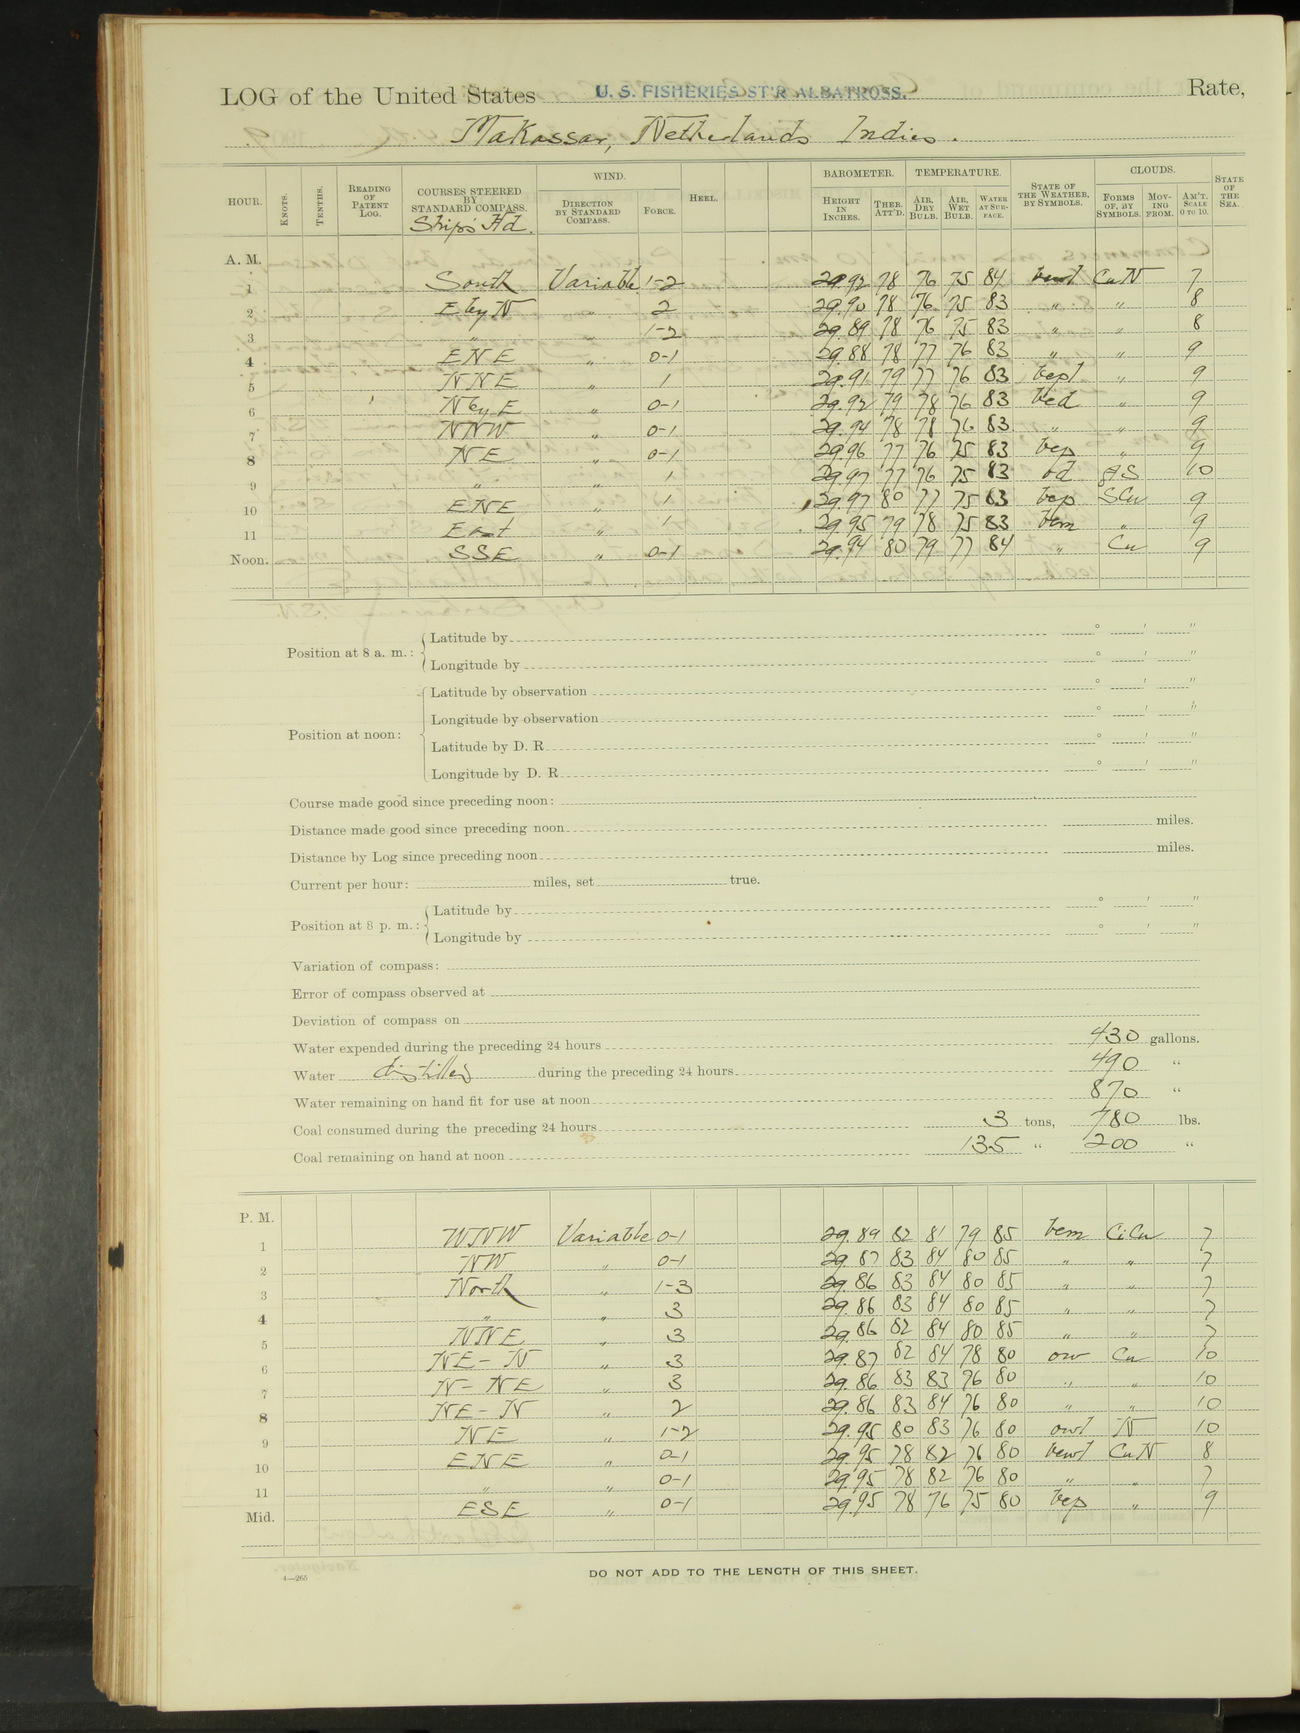 LOG of the United States U. S. FISHERIES ST'R ALBATROSS. Rate,
Makassar, Netherlands Indies.
HOUR. KNOTS. TENTHS. READING OF PATENT LOG. COURSES STEERED BY STANDARD COMPASS. Ship's Hd. WIND. DIRECTION BY STANDARD COMPASS. FORCE. HEEL. BAROMETER. HEIGHT IN INCHES. THER. ATT'D. TEMPERATURE. AIR, DRY BULB. AIR, WET BULB. WATER AT SURFACE. STATE OF THE WEATHER, BY SYMBOLS. CLOUDS. FORMS OF, BY SYMBOLS. MOVING FROM. AM'T. SCALE 0 TO 10. STATE OF THE SEA.
A. M.
1 South Variable 1-2 29.92 78 76 75 84 CuN 7
2 E by N " 2 29.90 78 76 75 83 " " 8
3 " " 1-2 29.89 78 76 75 83 " " 8
4 ENE " 0-1 29.88 78 77 76 83 " " 9
5 NNE " 1 29.91 79 77 76 83 bcpl " 9
6 N by E " 0-1 29.92 79 78 76 83 bcd " 9
7 NNW " 0-1 29.94 78 78 76 83 " " 9
8 NE " 0-1 29.96 77 76 75 83 bcp " 9
9 " " 1 29.97 77 76 75 83 od S 10
10 ENE " 1 29.97 80 77 75 83 bcp SCu 9
11 East " 1 29.95 79 78 75 83 bcm " 9
Noon. SSE " 0-1 29.94 80 79 77 84 " Cu 9
Position at 8 a. m.: Latitude by ° ' "
Longitude by ° ' "
Position at noon: Latitude by observation ° ' "
Longitude by observation ° ' "
Latitude by D. R. ° ' "
Longitude by D. R. ° ' "
Course made good since preceding noon:
Distance made good since preceding noon miles.
Distance by Log since preceding noon miles.
Current per hour: miles, set true.
Position at 8 p. m.: Latitude by ° ' "
Longitude by ° ' "
Variation of compass:
Error of compass observed at
Deviation of compass on
Water expended during the preceding 24 hours 430 gallons.
Water distilled during the preceding 24 hours 490 "
Water remaining on hand fit for use at noon 870 "
Coal consumed during the preceding 24 hours 3 tons, 780 lbs.
Coal remaining on hand at noon 135 " 200 "
P. M.
1 WNW Variable 0-1 29.89 82 81 79 85 bcm CiCu 7
2 NW " 0-1 29.87 83 84 80 85 " " 7
3 North " 1-3 29.86 83 84 80 85 " " 7
4 " " 3 29.86 83 84 80 85 " " 7
5 NNE " 3 29.86 82 84 80 85 " " 7
6 NE-N " 3 29.87 82 84 78 80 ow Cu 10
7 N-NE " 3 29.86 83 83 76 80 " " 10
8 NE-N " 2 29.86 83 84 76 80 " " 10
9 NE " 1-2 29.95 80 83 76 80 owl N 10
10 ENE " 0-1 29.95 78 82 76 80 bcwl CuN 8
11 " " 0-1 29.95 78 82 76 80 " " 7
Mid. ESE " 0-1 29.95 78 76 75 80 bcp " 9
4—265
DO NOT ADD TO THE LENGTH OF THIS SHEET.